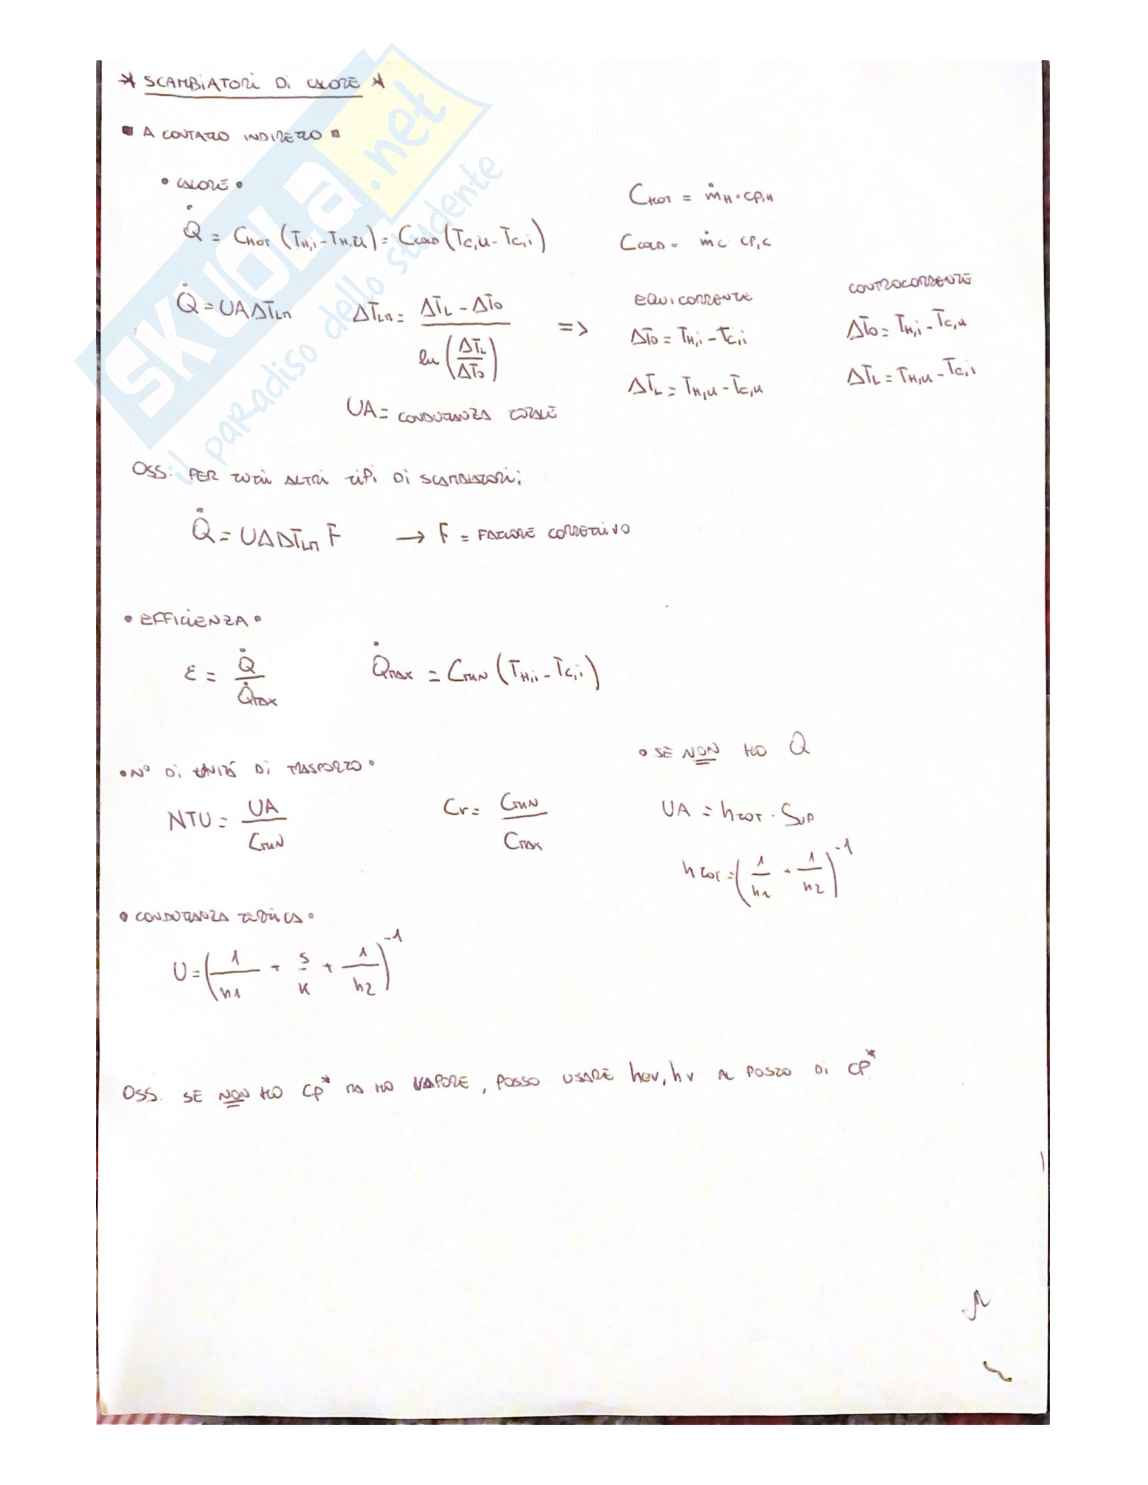 * SCAMBIATORI DI CALORE *
▪ A CONTATTO INDIRETTO ▪
• CALORE •
Q̇ = C_HOT (T_H,i - T_H,u) = C_COLD (T_C,u - T_C,i)
C_HOT = ṁ_H · cp,H
C_COLD = ṁc cp,c
Q̇ = UA ΔT_Ln
ΔT_Ln = (ΔT_L - ΔT_0) / ln (ΔT_L / ΔT_0)
=>
EQUICORRENTE
ΔT_0 = T_H,i - T_C,i
ΔT_L = T_H,u - T_C,u
CONTROCORRENTE
ΔT_0 = T_H,i - T_C,u
ΔT_L = T_H,u - T_C,i
UA = CONDUTTANZA TOTALE
OSS: PER TUTTI ALTRI TIPI DI SCAMBIATORI:
Q̇ = UA ΔT_Ln F → F = FATTORE CORRETTIVO
• EFFICIENZA •
ε = Q̇ / Q̇_MAX
Q̇_MAX = C_MIN (T_H,i - T_C,i)
• N° DI UNITÁ DI TRASPORTO •
NTU = UA / C_MIN
Cr = C_MIN / C_MAX
• SE NON HO Q
UA = h_TOT · SUP
h_TOT = (1/h1 + 1/h2)^-1
• CONDUTTANZA TERMICA •
U = (1/h1 + s/k + 1/h2)^-1
OSS. SE NON HO CP* MA HO VAPORE, POSSO USARE hev, hv AL POSTO DI CP*
SKUOLA.net
il paradiso dello studente